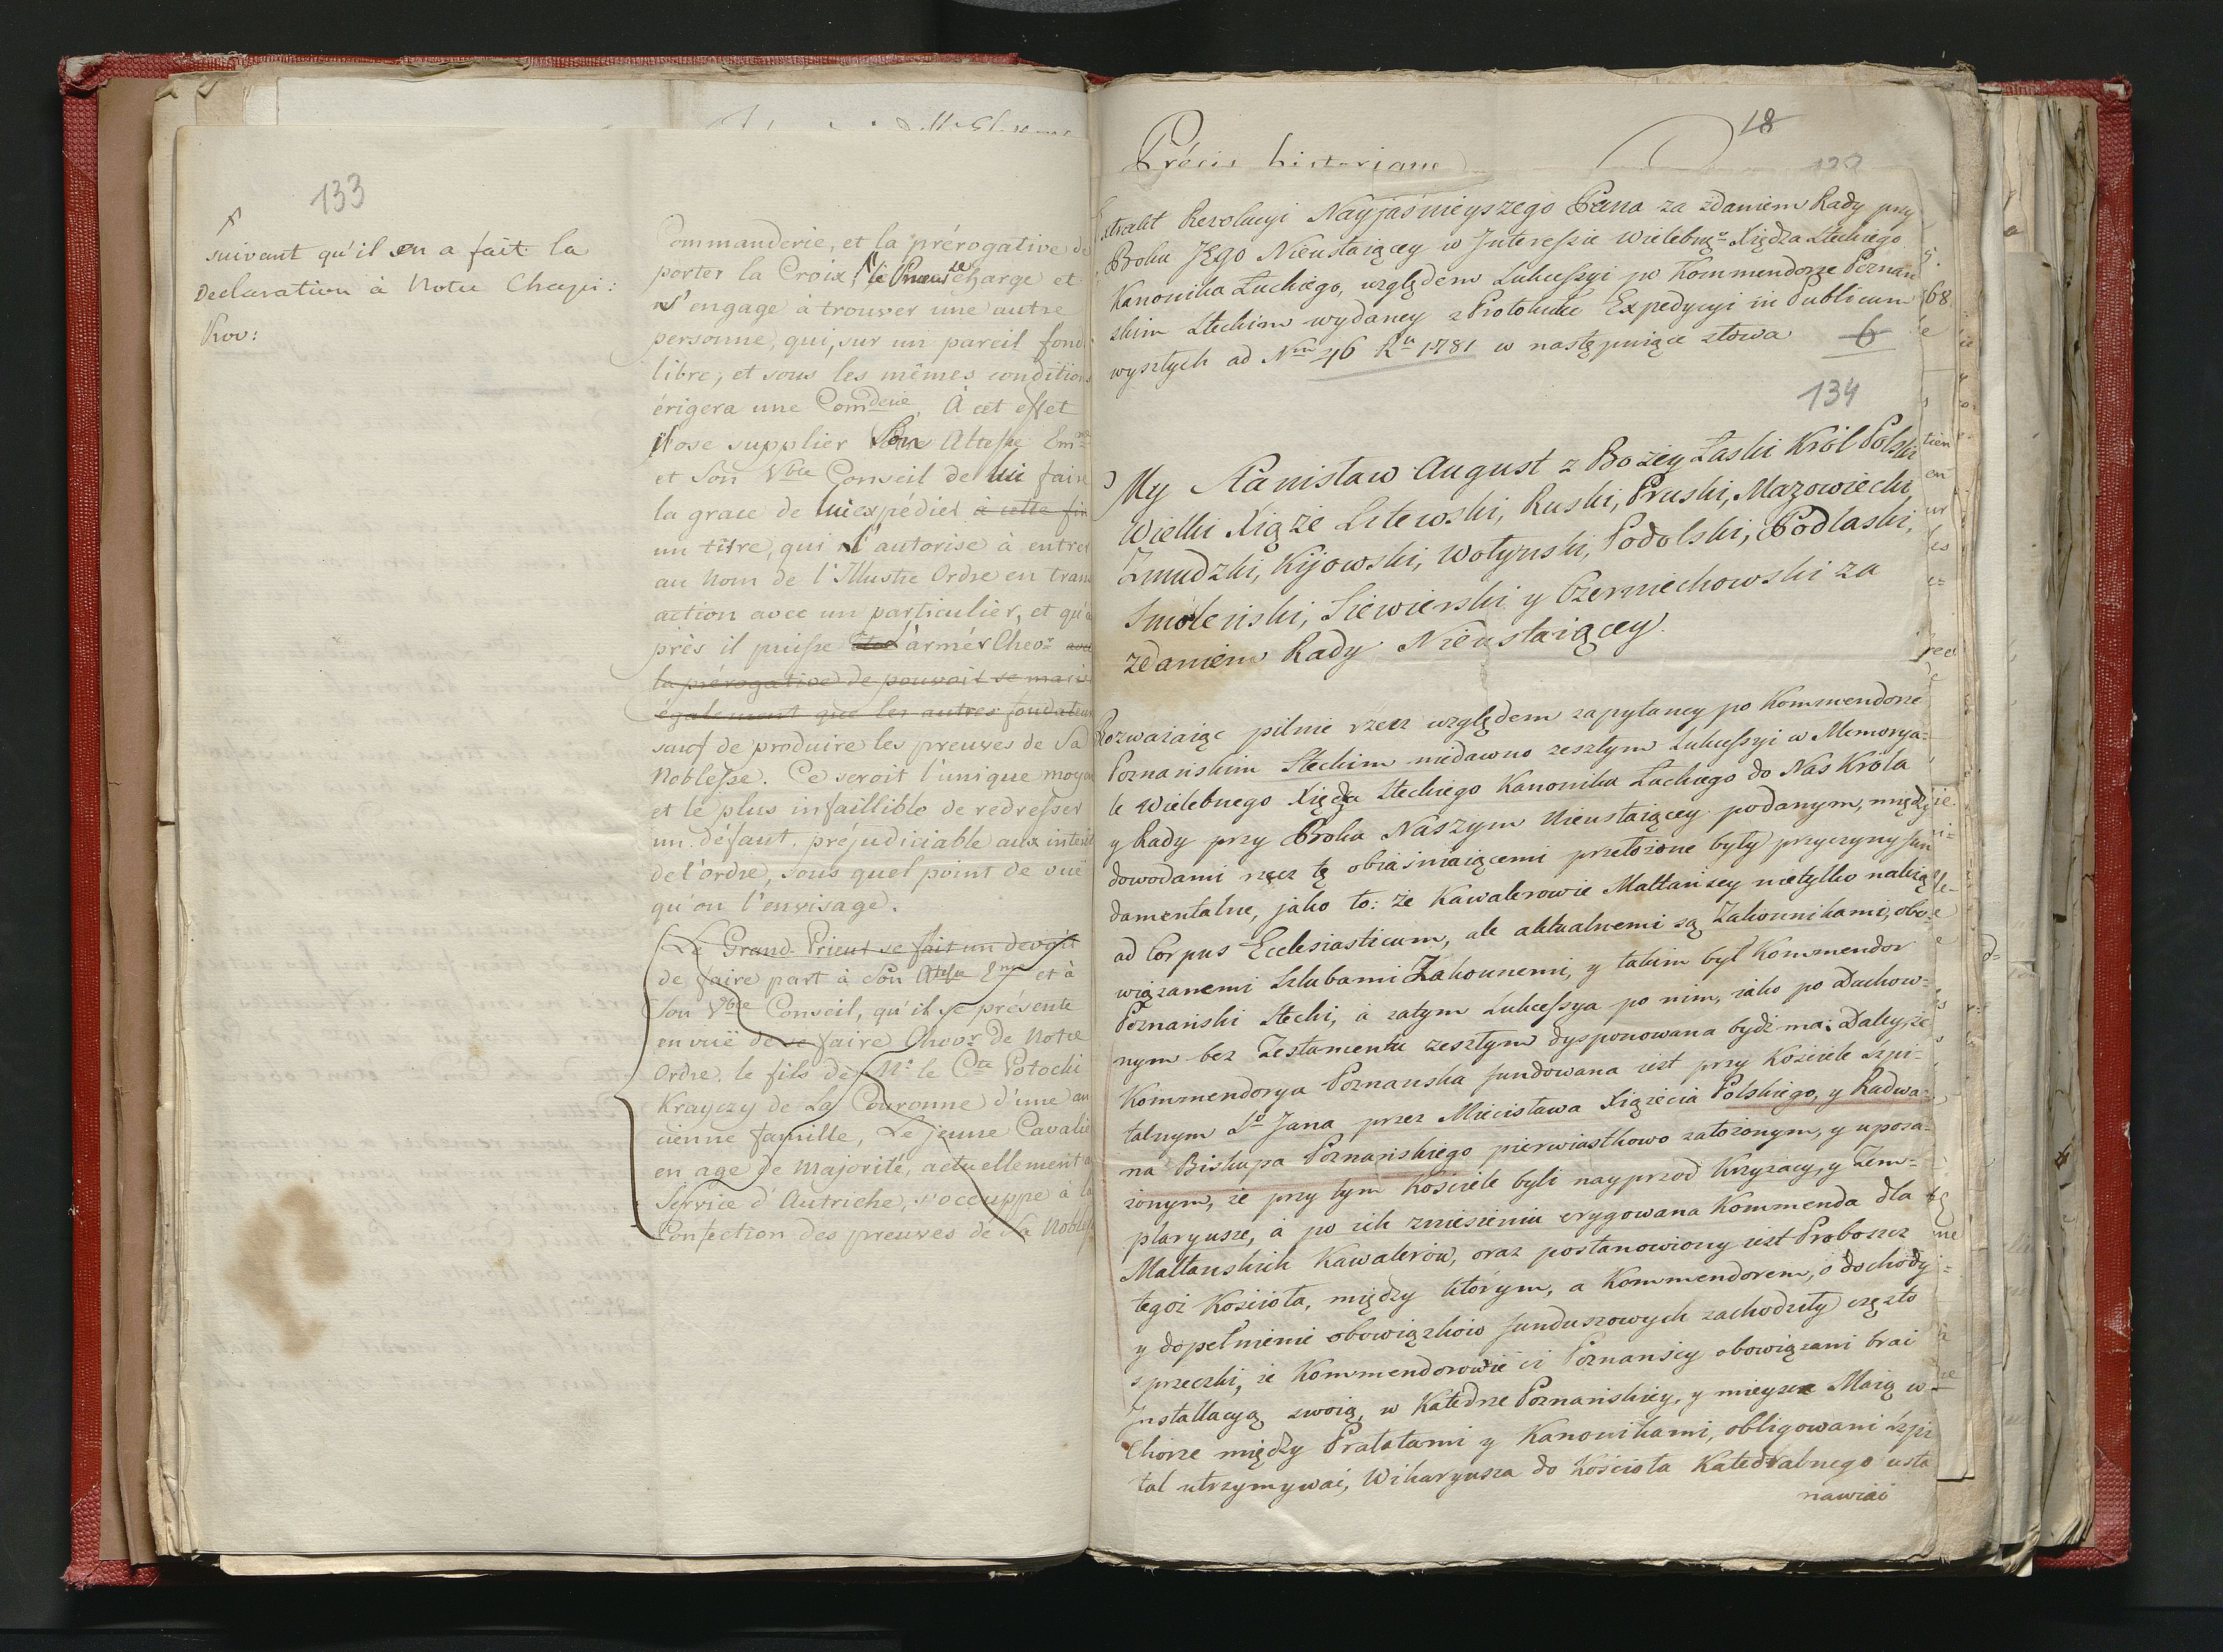 133
suivant qu'il en a fait la
Declaration à Notre Chapi:
Prov:
Commanderie, et la prérogative de
porter la Croix, se charge et
s'engage à trouver une autre
personne, qui, sur un pareil fond
libre, et sous les mêmes conditions
érigera une Comderie. À cet effet
il ose supplier Son Altesse Emme
et Son Vble Conseil de lui faire
la grace de lui expédier à cette fin
un titre, qui l'autorise à entrer
au Nom de l'Illustre Ordre en trans
action avec un particulier, et qu'a
près il puisse l'armer Chevr avec
la prérogative de pouvoir se marier
également que les autres fondateurs
sauf de produire les preuves de Sa
Noblesse. Ce seroit l'unique moyen
et le plus infaillible de redresser
un défaut, préjudiciable aux interêt
de l'ordre, sous quel point de vuë
qu'on l'envisage.
Le Grand-Prieur se fait un devoir
de faire part à Son Altesse Eme et à
Son Vble Conseil, qu'il se présente
en vuë de se faire Chevr de Notre
Ordre, le fils de Mr le Cte Potocki
Krayczy de La Couronne d'une an
cienne famille, Le jeune Cavalie
en age de Majorité, actuellement a
Service d'Autriche, s'occuppe à la
Confection des preuves de Sa Nobles
18
Précis historique
Extrakt Rezolucyi Nayjaśnieyszego Pana za zdaniem Rady przy
Boku JEgo Nieustaiącey w Interessie Wielebngo Xiędza Steckiego
Kanonika Łuckiego, względem Sukcessyi po Kommendorze Poznań
skim Steckim wydaney z Protokułu Expedycyi in Publicum
wyszłych ad Nm 46 Ru 1781 w następuiące słowa
6
134
My Stanisław August z Bożey Łaski Król Polski
Wielki Xiąże Litewski, Ruski, Pruski, Mazowiecki,
Żmudzki, Kijowski, Wołyński, Podolski, Podlaski,
Smoleński, Siewierski y Czerniechowski za
zdaniem Rady Nieustaiącey.
Rozważaiąc pilnie rzecz względem zapytaney po Kommendorze
Poznańskim Steckim niedawno zeszłym Sukcessyi w Memorya=
le Wielebnego Xiędza Steckiego Kanonika Łuckiego do Nas Króla
y Rady przy Boku Naszym Nieustaiącey podanym, między
dowodami rzecz tę obiaśniaiącemi przełożone były przyczyny fun
damentalne, jako to: że Kawalerowie Maltańscy nietylko należą
ad Corpus Ecclesiasticum, ale aktualnemi są Zakonnikami, obo=
wiązanemi Szlubami Zakonnemi, y takim był Kommendor
Poznański Stecki, a zatym Sukcessya po nim, iako po Duchow=
nym bez Testamentu zeszłym dysponowana bydź ma: Daley, że
Kommendorya Poznańska fundowana iest przy Kościele Szpi=
talnym S. Jana przez Miecisława Xiążecia Polskiego, y Radwa=
na Biskupa Poznańskiego pierwiastkowo założonym, y uposa=
żonym, że przy tym Kościele byli nayprzod Krzyżacy, y Tem=
plaryusze, a po ich zniesieniu erygowana Kommenda dla
Maltańskich Kawalerow, oraz postanowiony iest Proboszcz
tegoż Kościoła, między którym, a Kommendorem, o dochody
y dopełnienie obowiązkow funduszowych zachodziły często
sprzeczki, że Kommendorowie ci Poznańscy obowiązani brać
Installacyą swoią w Katedrze Poznańskiey, y mieysce Maią w
Chorze między Prałatami y Kanonikami, obligowani Szpi
tal utrzymywać, Wikaryusza do Kościoła Katedralnego usta
nawiać